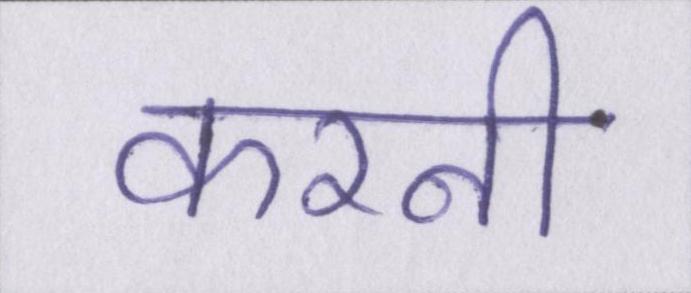 करनी